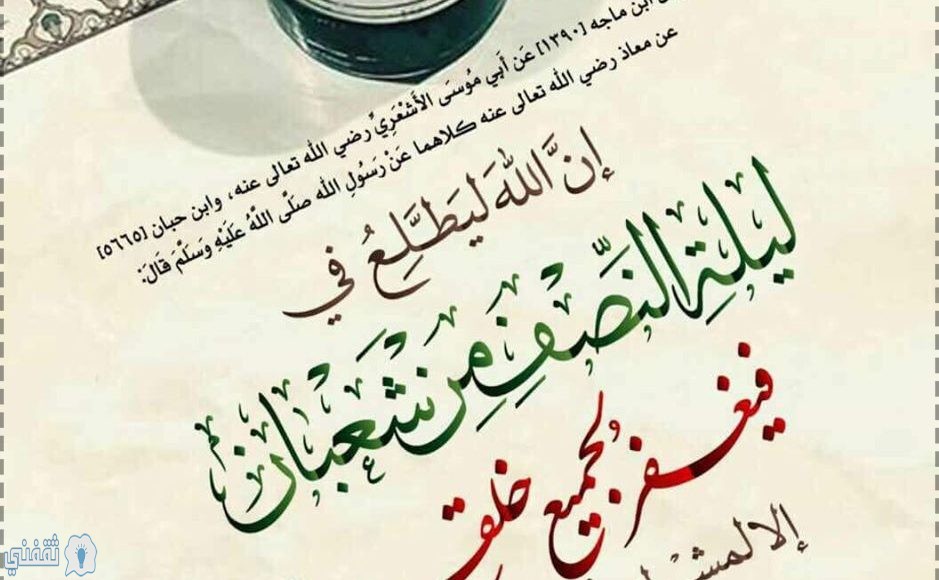 ابن ماجه [١٣٩٠] عَن أَبي مُوسَى الأَشْعَرِيِّ رضي الله تعالى عنه، وابن حبان [٥٦٦٥]
عن معاذ رضي الله تعالى عنه كلاهما عَنْ رَسُولِ الله صلَّى اللَّهُ عَلَيْهِ وَسَلَّمَ قَالَ:
إنَّ اللهَ ليَطَّلِعُ في
ليلةِ النِّصْفِ مِن شَعْبَان
فيغفر لجميع خلقه
إلا لمشرك
ثقفني